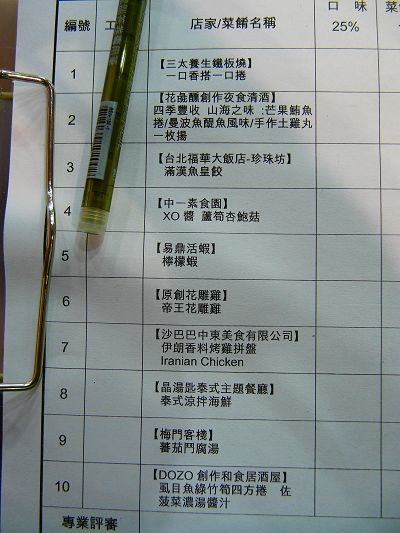 編號 工 店家/菜餚名稱 口 味 菜
25%
1 【三太養生鐵板燒】
一口香搭一口捲
2 【花彘釀創作夜食清酒】
四季豐收 山海之味 :芒果鮪魚
捲/曼波魚醍魚風味/手作土雞丸
一枚揚
3 【台北福華大飯店-珍珠坊】
滿漢魚皇餃
4 【中一素食園】
XO 醬 蘆筍杏鮑菇
5 【易鼎活蝦】
檸檬蝦
6 【原創花雕雞】
帝王花雕雞
7 【沙巴巴中東美食有限公司】
伊朗香料烤雞拼盤
Iranian Chicken
8 【晶湯匙泰式主題餐廳】
泰式涼拌海鮮
9 【梅門客棧】
蕃茄鬥腐湯
10 【DOZO 創作和食居酒屋】
虱目魚綠竹筍四方捲 佐
菠菜濃湯醬汁
專業評審